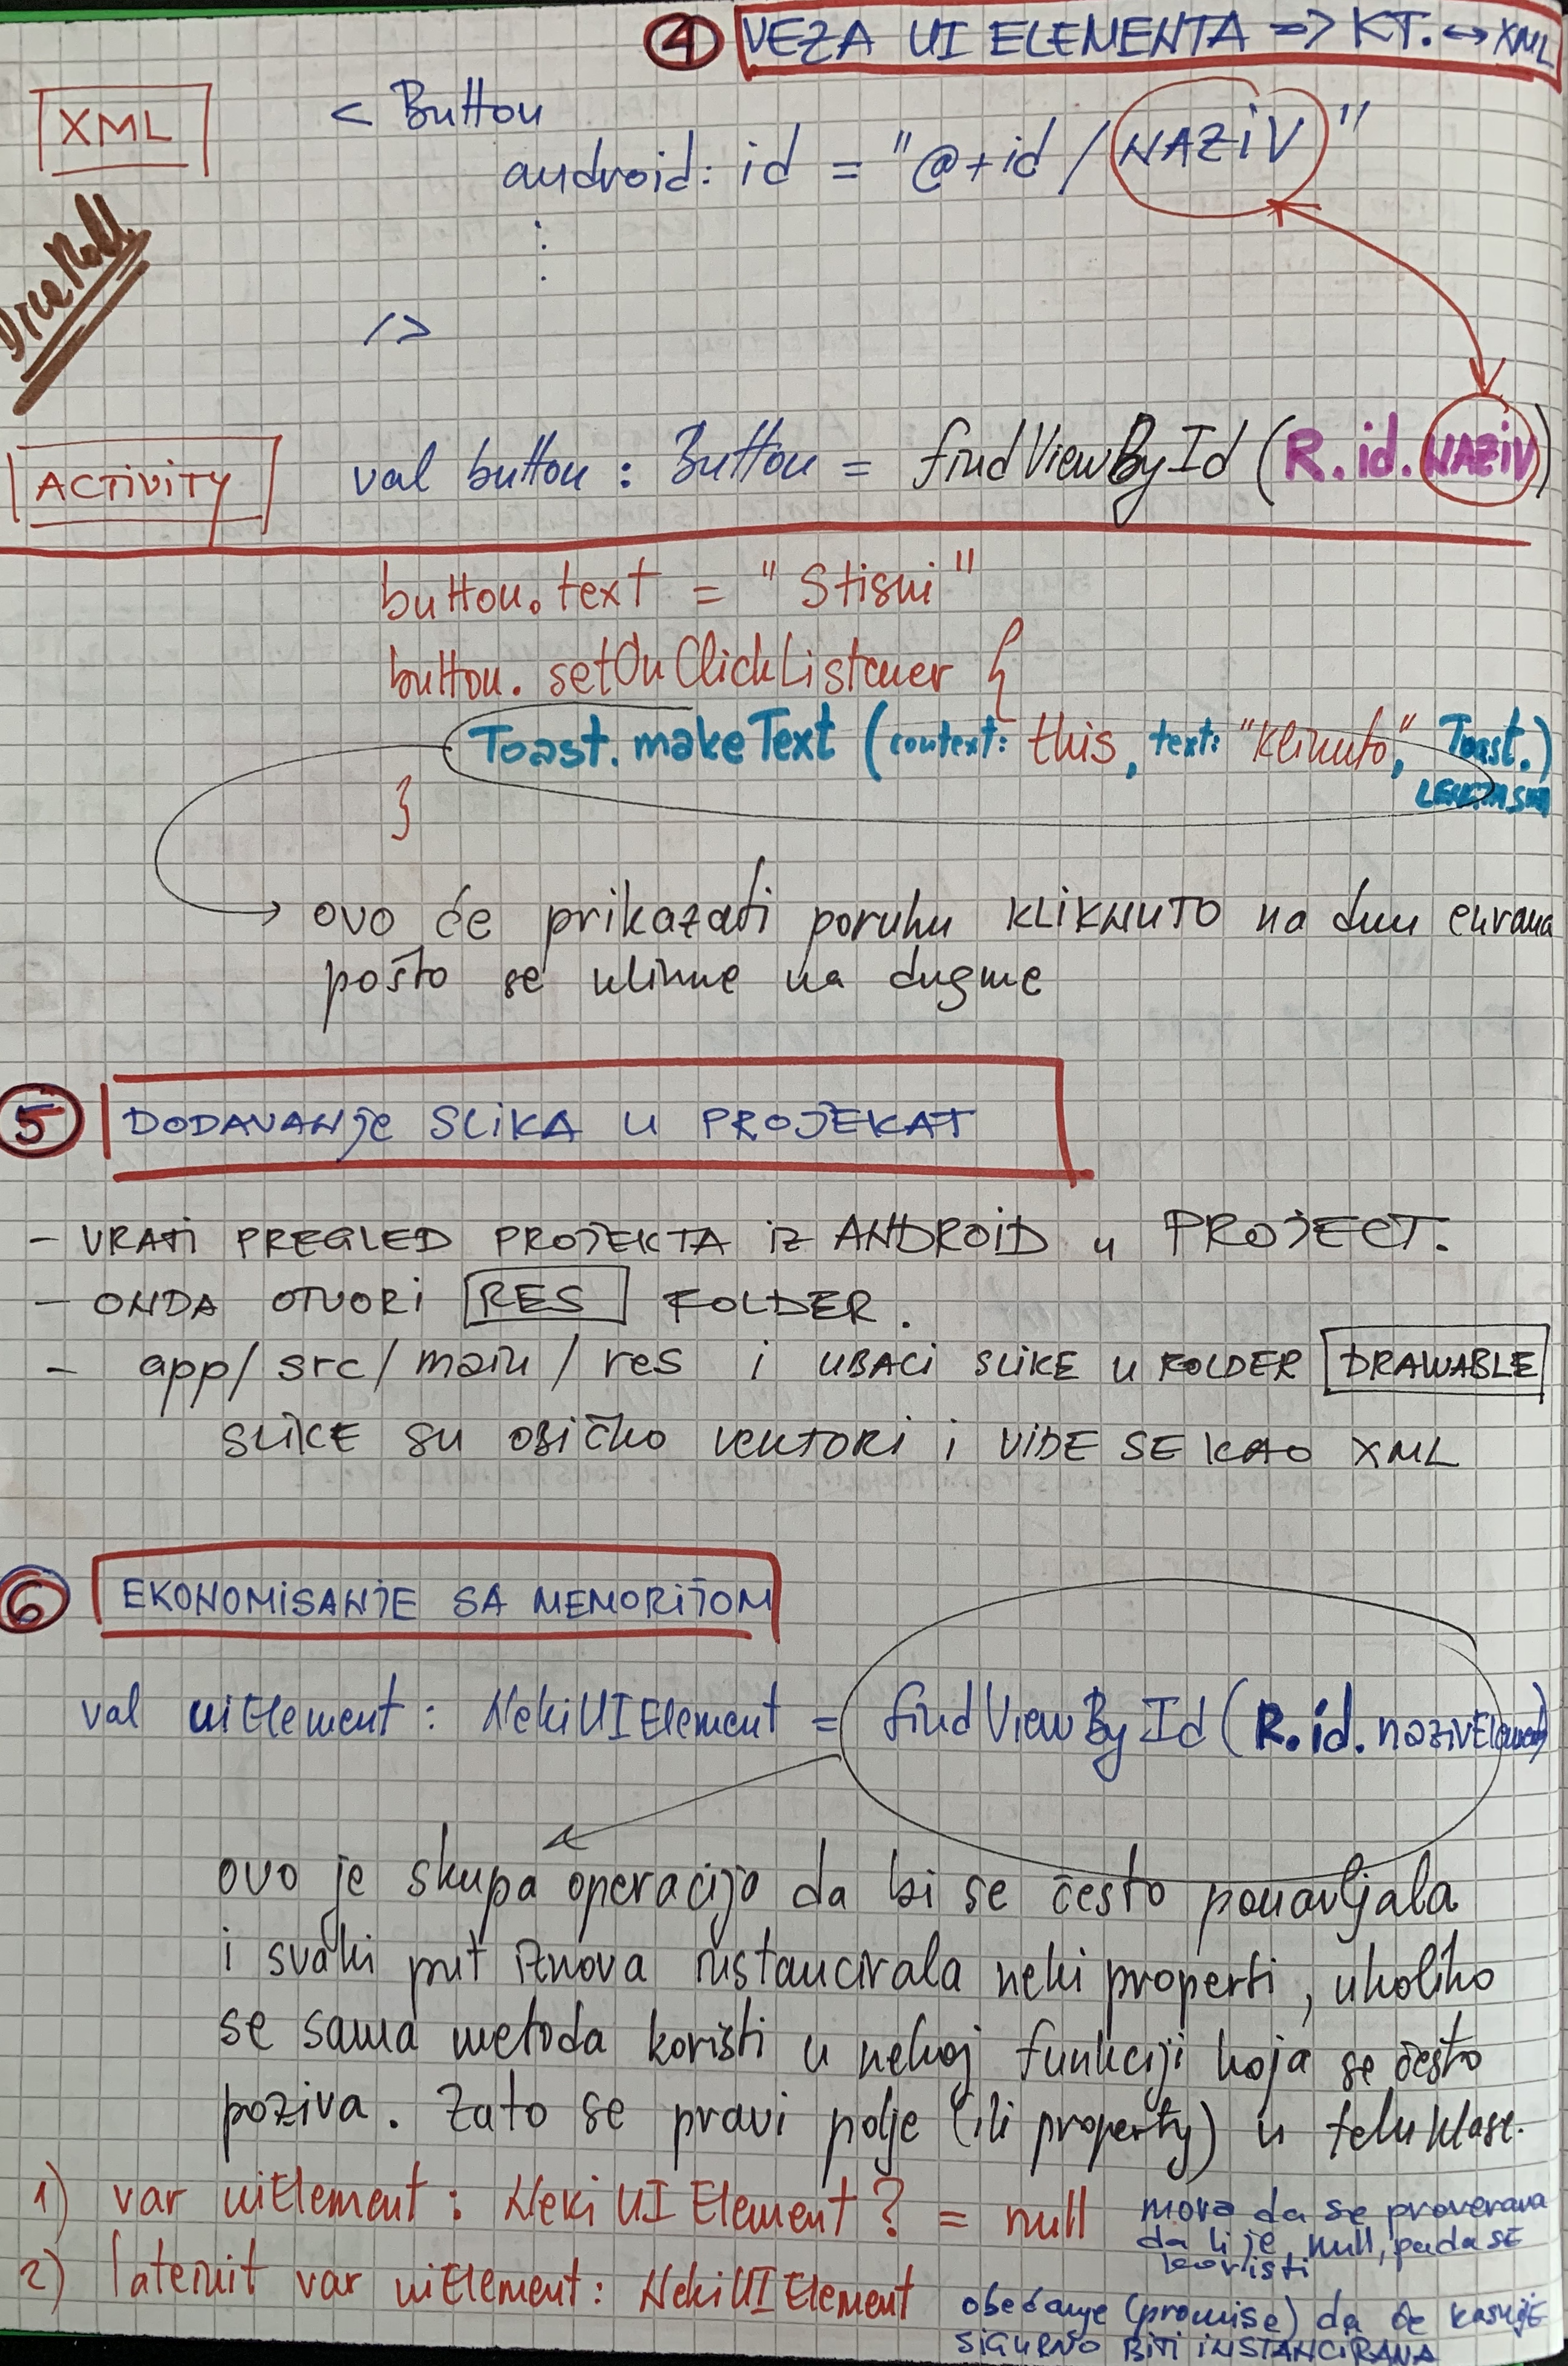 ④ VEZA UI ELEMENTA => KT. ↔ XML
XML
< Button
android: id = "@+id / NAZIV"
:
/>
DiceRoll
ACTIVITY
val button : Button = findViewById (R.id.NAZIV)
button.text = "Stisni"
button. setOnClickListener {
Toast. makeText (context: this, text: "kliknuto", Toast.)
}
→ ovo će prikazati poruku KLIKNUTO na dnu ekrana
pošto se klikne na dugme
⑤ DODAVANJE SLIKA U PROJEKAT
- VRATI PREGLED PROJEKTA iZ ANDROID u PROJECT.
- ONDA OTVORI RES FOLDER.
- app/ src/ main / res i UBACI SLIKE U FOLDER DRAWABLE
SLIKE SU OBIČNO VEKTORI i VIDE SE KAO XML
⑥ EKONOMISANJE SA MEMORIJOM
val uiElement : NekiUIElement = findViewById (R.id. nazivElementa)
ovo je skupa operacija da bi se često ponavljala
i svaki put iznova instancirala neki properti, ukoliko
se sama metoda koristi u nekoj funkciji koja se često
poziva. Zato se pravi polje (ili property) u telu klase.
1) var uiElement : Neki UI Element ? = null mora da se proverava
da li je null, pa da SE
koristi
2) lateinit var uiElement: NekiUIElement obećanje (promise) da će kasnije
SIGURNO BITI INSTANCIRANA